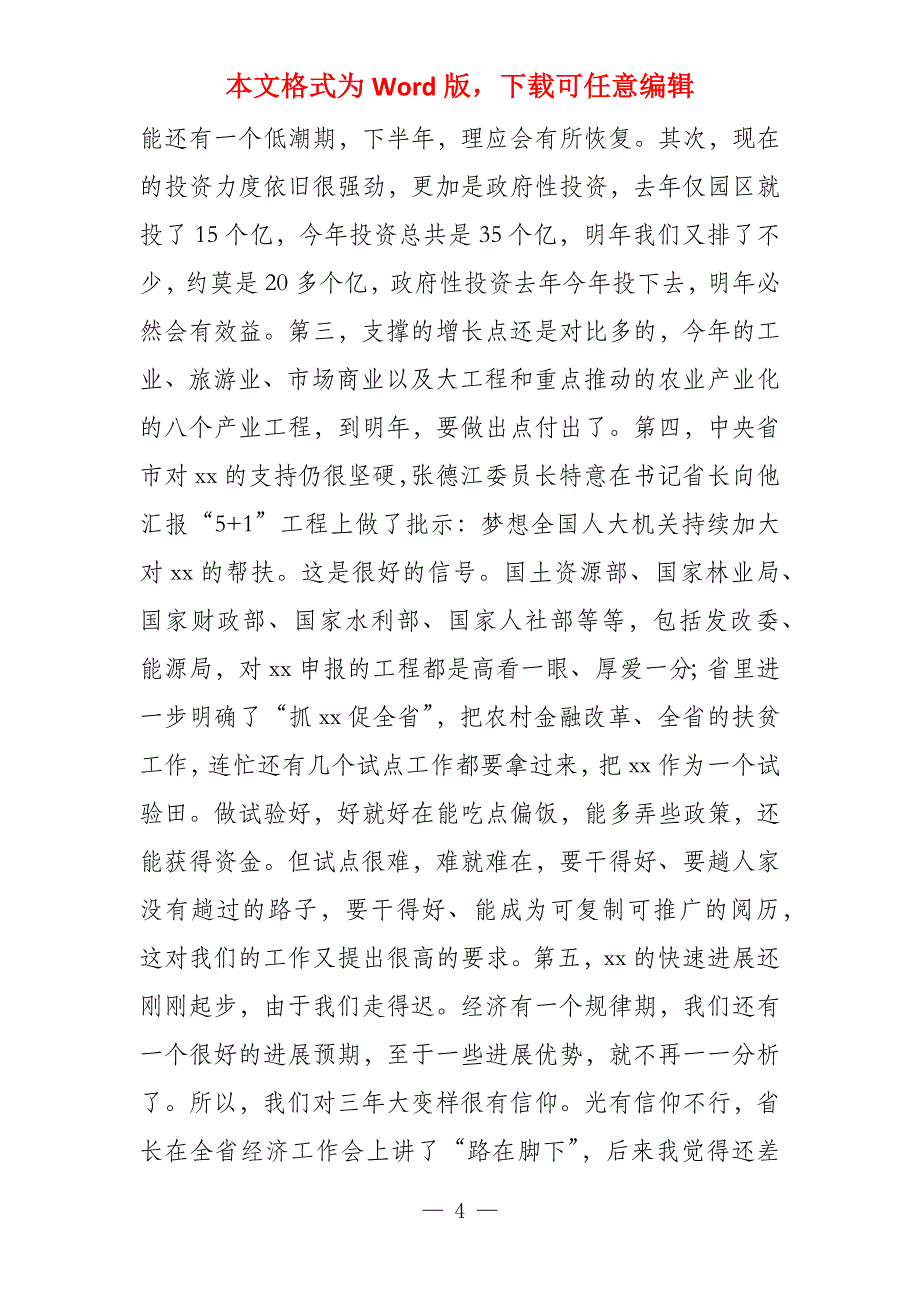 本文格式为 Word 版，下载可任意编辑
能还有一个低潮期，下半年，理应会有所恢复。其次，现在
的投资力度依旧很强劲，更加是政府性投资，去年仅园区就
投了 15 个亿，今年投资总共是 35 个亿，明年我们又排了不
少，约莫是 20 多个亿，政府性投资去年今年投下去，明年必
然会有效益。第三，支撑的增长点还是对比多的，今年的工
业、旅游业、市场商业以及大工程和重点推动的农业产业化
的八个产业工程，到明年，要做出点付出了。第四，中央省
市对 xx 的支持仍很坚硬，张德江委员长特意在书记省长向他
汇报“5+1”工程上做了批示：梦想全国人大机关持续加大
对 xx 的帮扶。这是很好的信号。国土资源部、国家林业局、
国家财政部、国家水利部、国家人社部等等，包括发改委、
能源局，对 xx 申报的工程都是高看一眼、厚爱一分；省里进
一步明确了“抓 xx 促全省”，把农村金融改革、全省的扶贫
工作，连忙还有几个试点工作都要拿过来，把 xx 作为一个试
验田。做试验好，好就好在能吃点偏饭，能多弄些政策，还
能获得资金。但试点很难，难就难在，要干得好、要趟人家
没有趟过的路子，要干得好、能成为可复制可推广的阅历，
这对我们的工作又提出很高的要求。第五，xx 的快速进展还
刚刚起步，由于我们走得迟。经济有一个规律期，我们还有
一个很好的进展预期，至于一些进展优势，就不再一一分析
了。所以，我们对三年大变样很有信仰。光有信仰不行，省
长在全省经济工作会上讲了“路在脚下”，后来我觉得还差
— 4 —